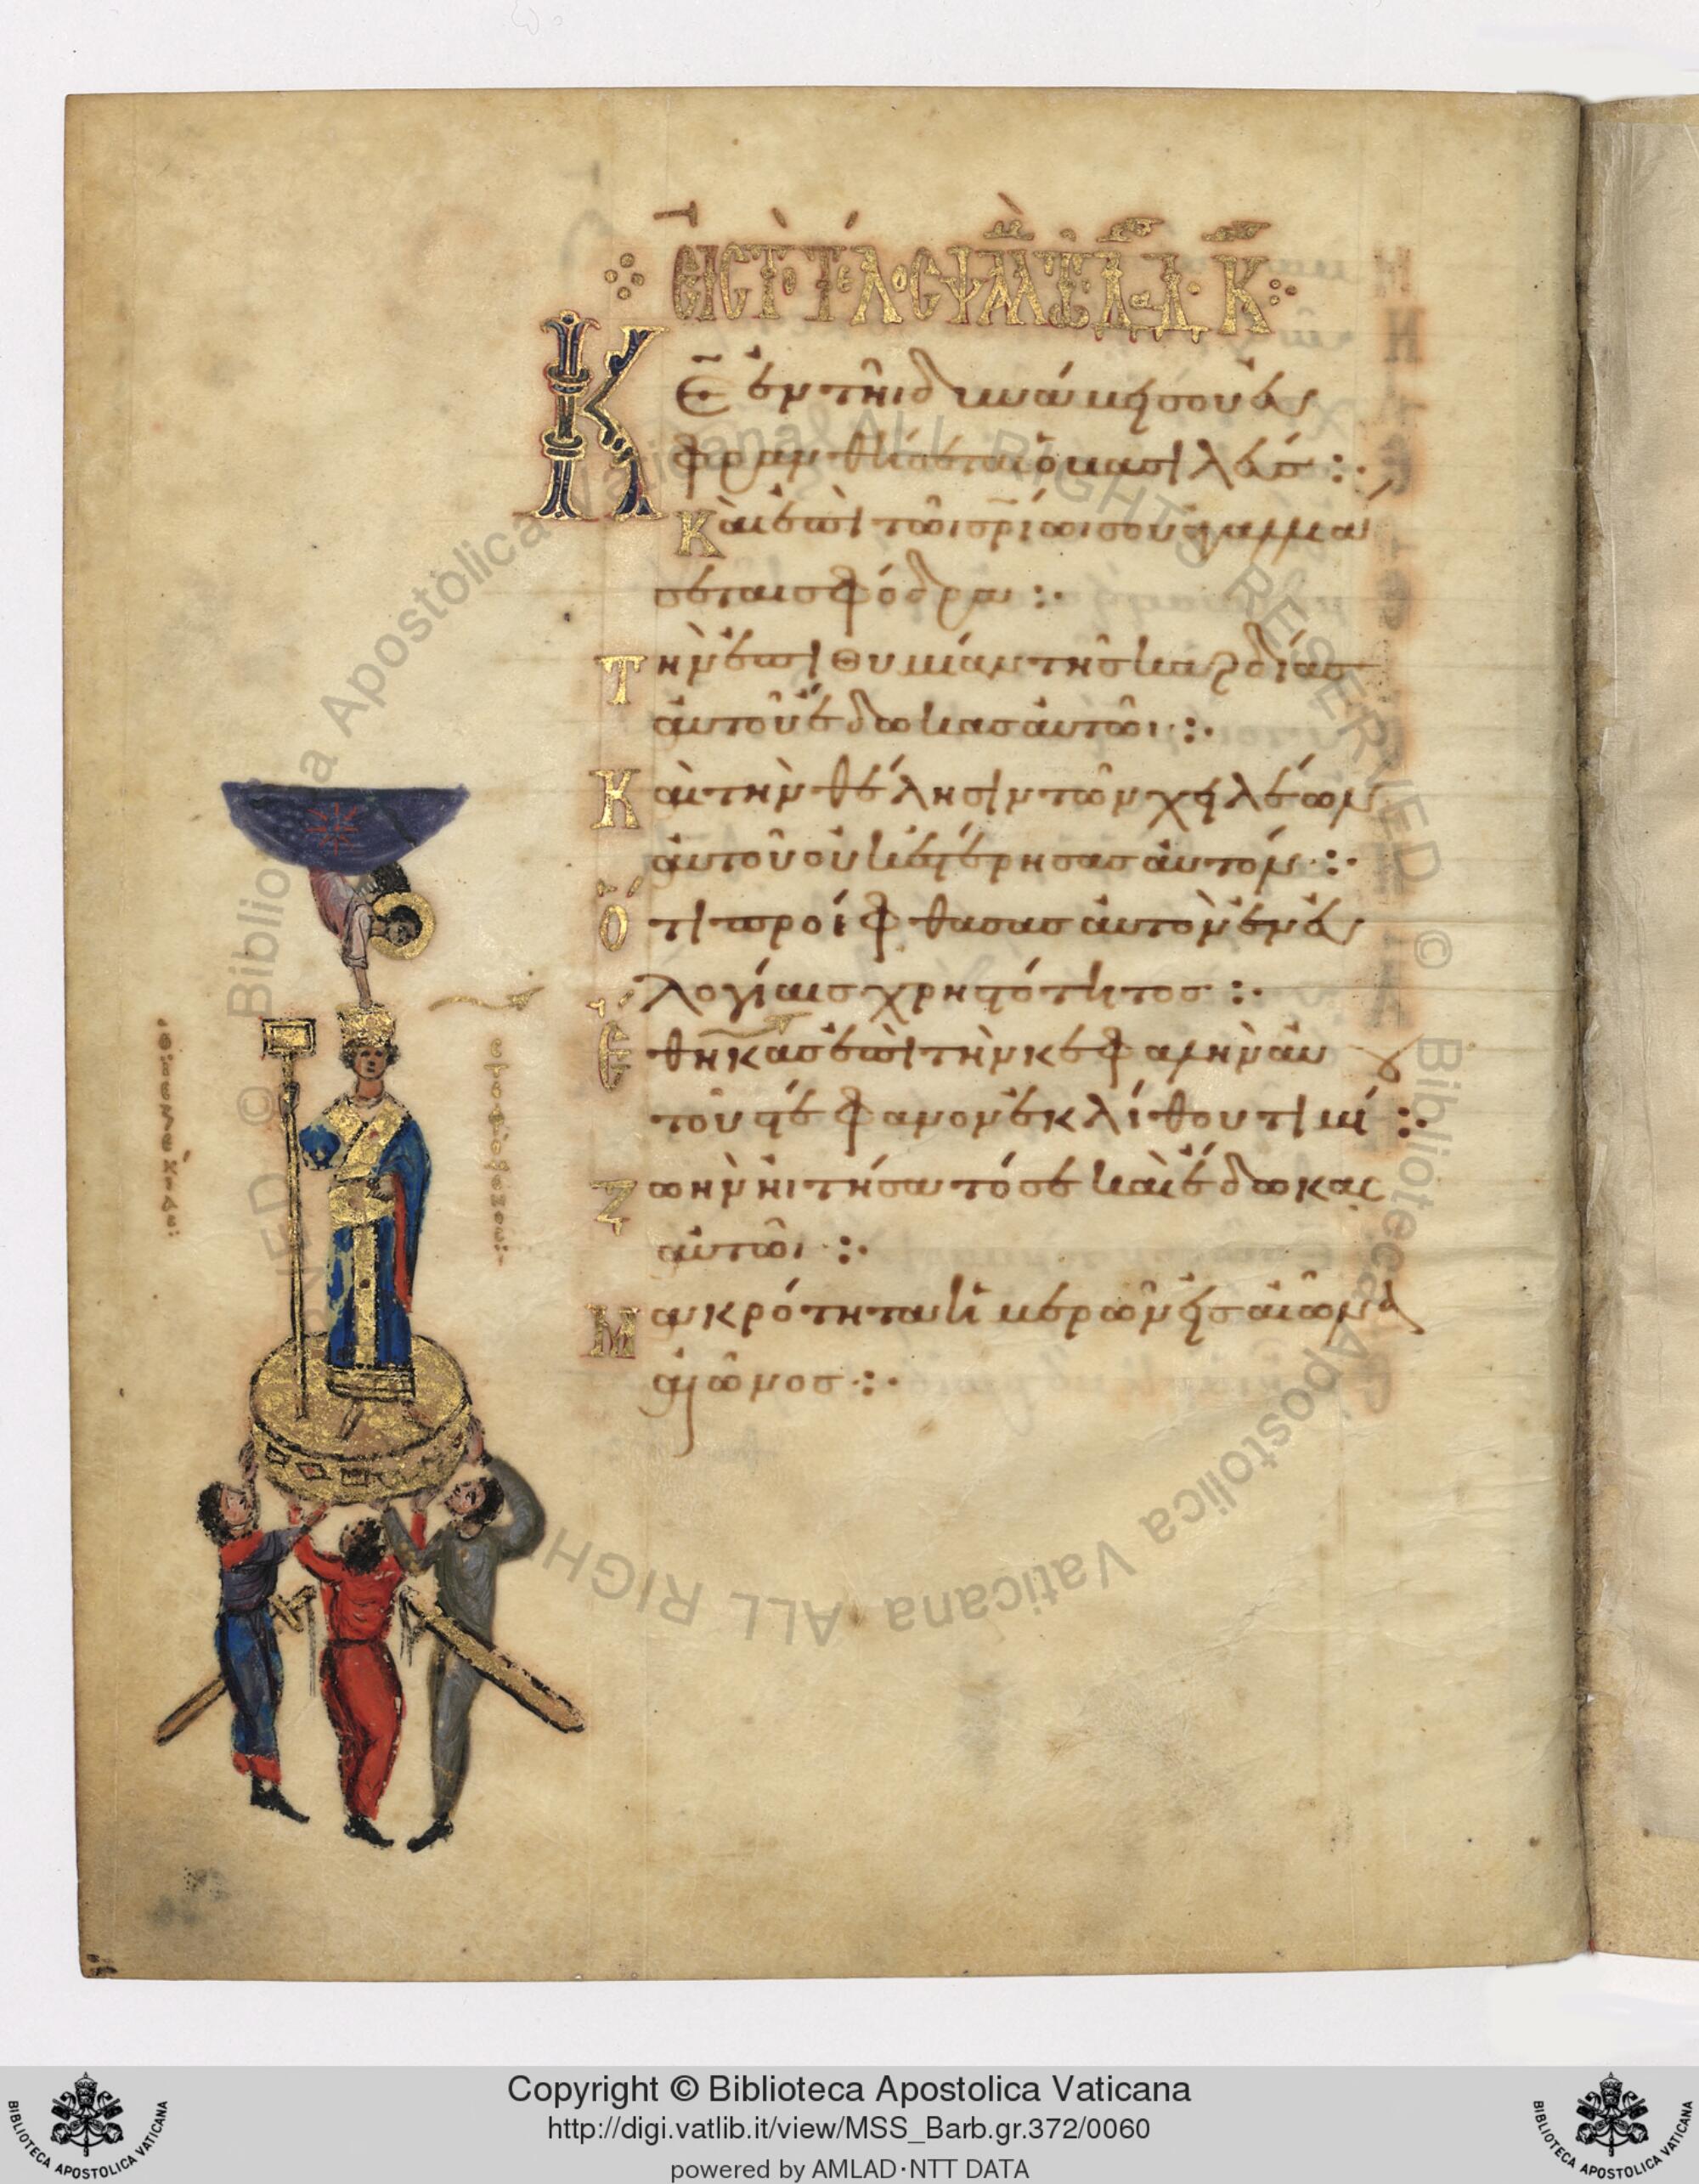 ΕΙϹ ΤΟ ΤΕΛΟϹ ΨΑΛΜ ΤΩ ΔΑΔ Κ
Κ̅Ε̅ ἐν τῆι δυνάμει σου εὐ
φρανθήσεται ὁ βασιλεύσ :·
Καὶ ἐπὶ τῶι σρ̅ίωι σου ἀγαλλιά
σεται σφόδρα :·
Τὴν ἐπιθυμίαν τῆσ καρδίασ
αὐτοῦ ἔδωκασ αὐτῶι :·
Καὶ τὴν θέλησιν τῶν χειλέων
αὐτοῦ οὐκ ἐστέρησασ αὐτόν :·
Ὅτι προέφθασασ αὐτὸν ἐν εὐ
λογίαισ χρηστότητοσ :·
Ἔθηκασ ἐπὶ τὴν κεφαλὴν αὐ
τοῦ στέφανον ἐκ λίθου τιμί :·
Ζωὴν ἠιτήσατό σε καὶ ἔδωκας
αὐτῶι :·
Μακρότητα ἡμερῶν εἰσ αἰῶνα
αἰῶνοσ :·
Ἐζεκίασ
στεφόμενοσ
Copyright © Biblioteca Apostolica Vaticana
http://digi.vatlib.it/view/MSS_Barb.gr.372/0060
powered by AMLAD·NTT DATA
BIBLIOTECA APOSTOLICA VATICANA
BIBLIOTECA APOSTOLICA VATICANA
© Biblioteca Apostolica Vaticana ALL RIGHTS RESERVED
© Biblioteca Apostolica Vaticana ALL RIGHTS RESERVED